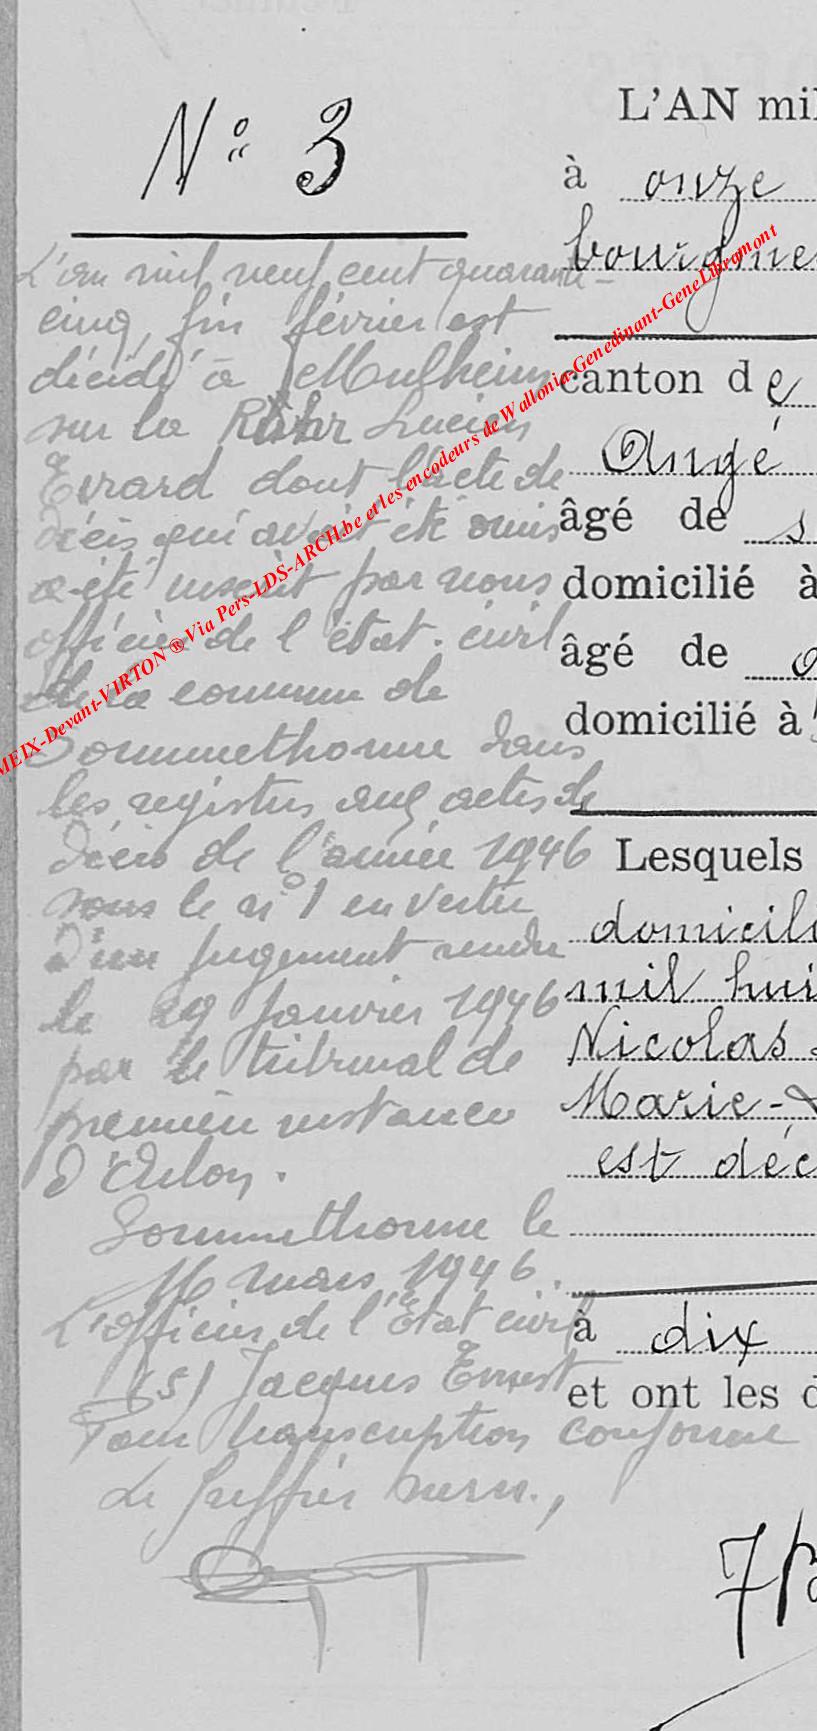 N° 3
L'an mil neuf cent quarante-
cinq, fin février est
décédé à Mulheim
sur la Ruhr Lucien
Evrard dont l'acte de
décès qui avait été omis
a été inscrit par nous
officier de l'état-civil
de la commune de
Sommethonne dans
les registres aux actes de
décès de l'année 1946
sous le n° 1 en vertu
d'un jugement rendu
le 29 Janvier 1946
par le tribunal de
première instance
d'Arlon.
Sommethonne le
16 mars 1946.
L'officier de l'Etat civil
(s) Jacques Ernest
Pour transcription conforme
Le Greffier
L'AN mil
à onze
bourgme
canton de
Angé
âgé de s
domicilié à
âgé de
domicilié à
Lesquels
domicili
mil hui
Nicolas
Marie-
est déc
à dix
et ont les d
MEIX-Devant-VIRTON ® Via Pers-LDS-ARCH.be et les encodeurs de Wallonia-Genedinant-GeneLibramont